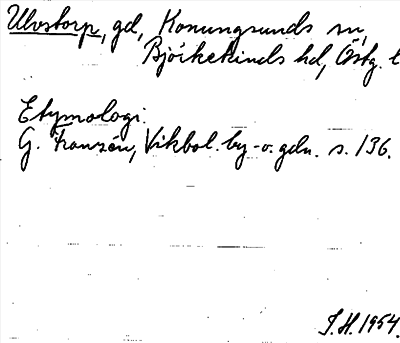 Ulvstorp, gd, Konungsunds sn,
Björkekinds hd, Östg. l
Etymologi:
G. Franzén, Vikbol. by- o. gdn. s. 136.
J.H. 1954.